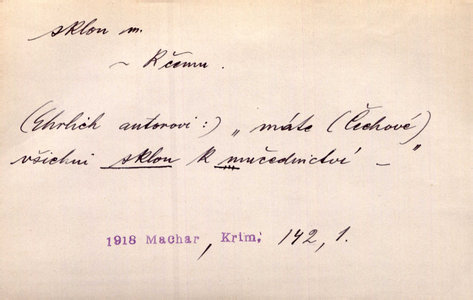 sklon m.
~ K čemu.
(Ehrlich autorovi:) „máte (Čechové)
všichni sklon k mučednictví –"
1918 Machar, Krim, 142, 1.